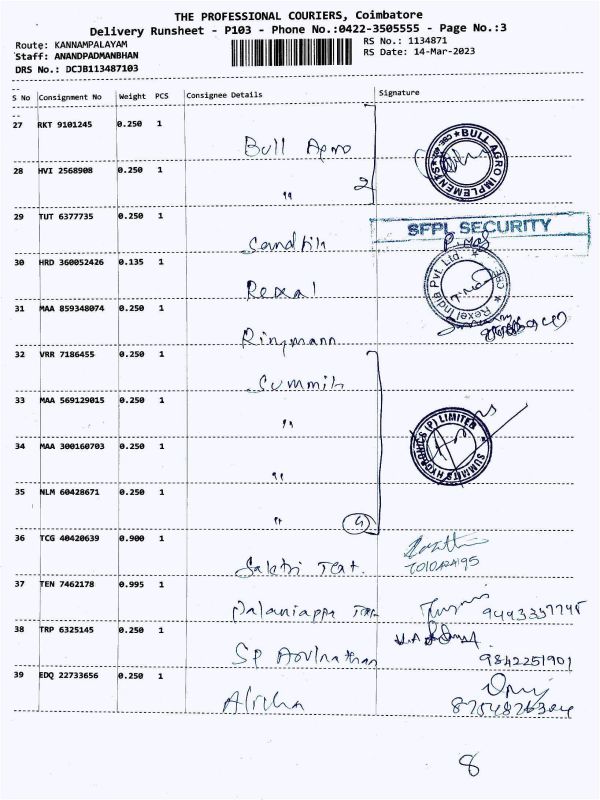 THE PROFESSIONAL COURIERS, Coimbatore
Delivery Runsheet - P103 - Phone No.:0422-3505555 - Page No.:3
Route: KANNAMPALAYAM
Staff: ANANDPADMANBHAN
DRS No.: DCJB113487103
RS No.: 1134871
RS Date: 14-Mar-2023
S No Consignment No Weight PCS Consignee Details Signature
27 RKT 9101245 0.250 1
Bull Agro
BULL AGRO IMPLEMENTS
28 HVI 2568908 0.250 1
" 2
29 TUT 6377735 0.250 1
SFPL SECURITY
30 HRD 360052426 0.135 1
Rexal
Rexel India Pvt. Ltd. CBE
31 MAA 859348074 0.250 1
Ringmann
32 VRR 7186455 0.250 1
Summih
33 MAA 569129015 0.250 1
"
SUMMITS HYGRONICS (P) LIMITED
34 MAA 300160703 0.250 1
"
35 NLM 60428671 0.250 1
"
36 TCG 40420639 0.900 1
Sakthi
37 TEN 7462178 0.995 1
Palaniappa
38 TRP 6325145 0.250 1
SP
9842251901
39 EDQ 22733656 0.250 1
8